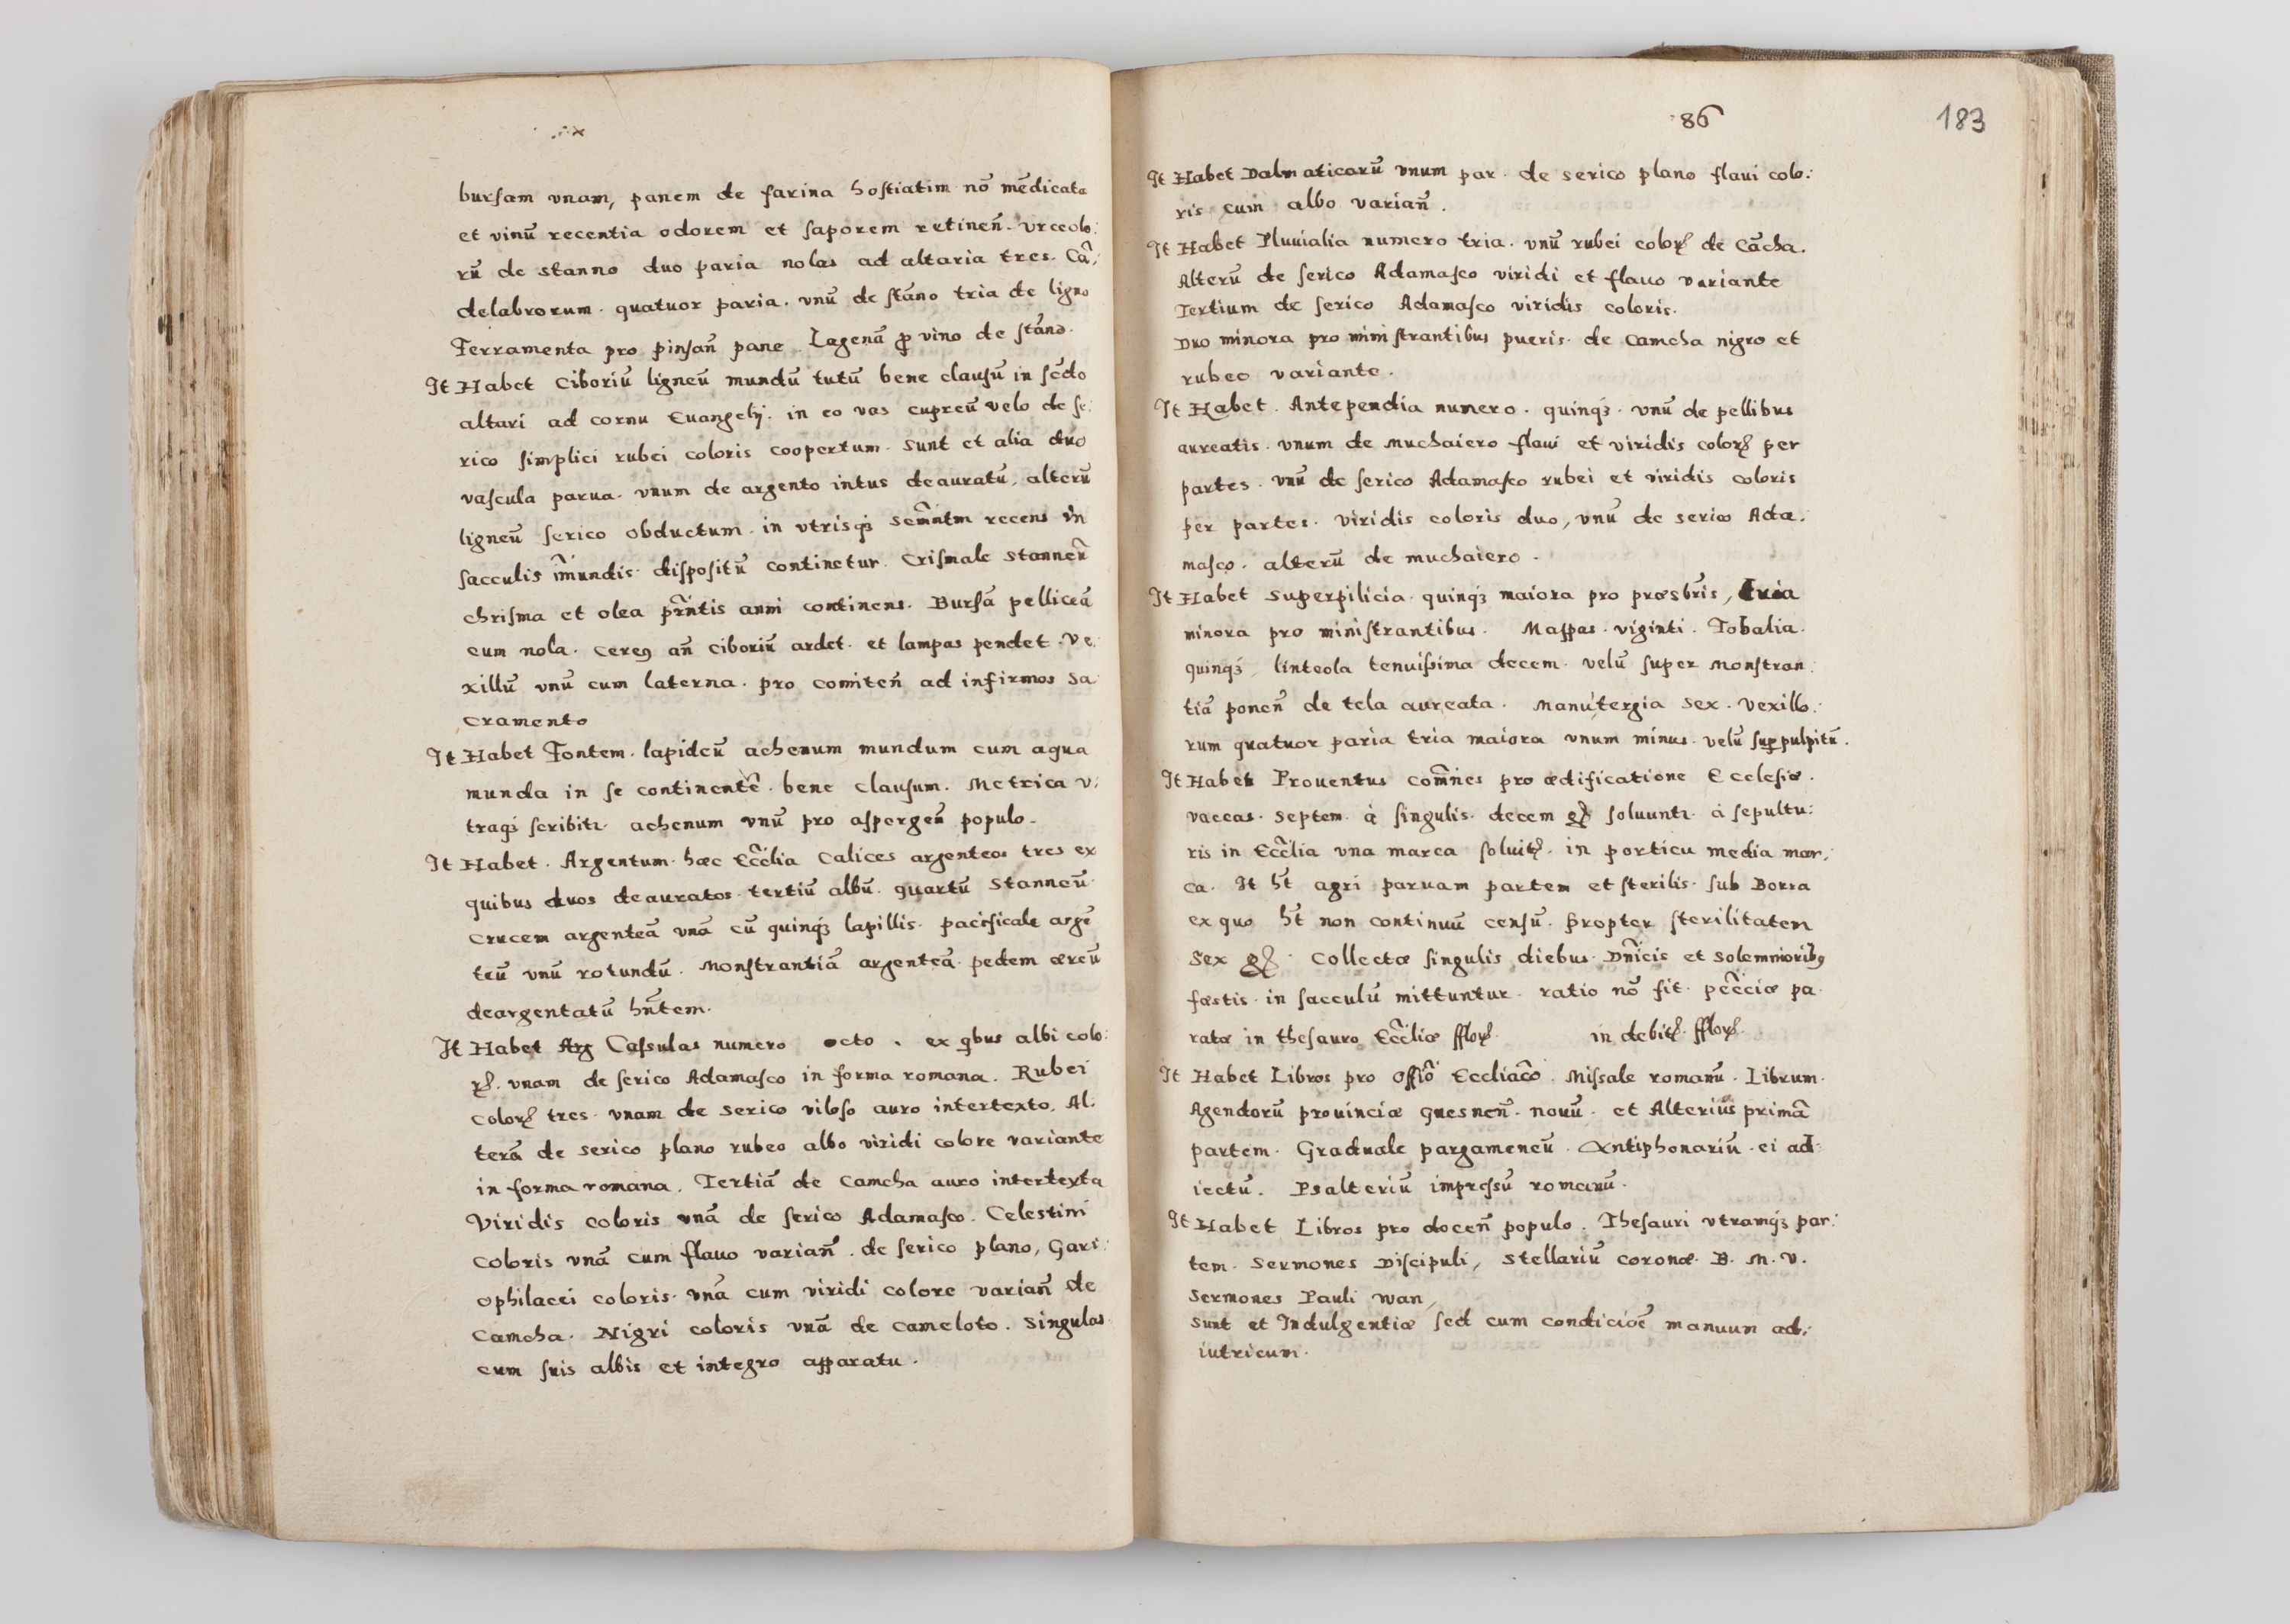 bursam vnam, panem de farina hostiatim nō mēdicata
et vinū recentia odorem et saporem retineñ. vrceolo:
rū de stanno duo paria nolas ad altaria tres. Cā:
delabrorum. quatuor paria. vnū de stāno tria de ligno
Ferramenta pro pinsañ pane. Lagenā ꝓ vino de stāno.
It Habet Ciboriū ligneū mundū tutū bene clausū in scdo
altari ad cornu Euangelij. in eo vas cupreū velo de se:
rico simplici rubei coloris coopertum. Sunt et alia duo
vascula parua. vnum de argento intus deauratū, alterū
ligneū serico obductum. in vtrisqȝ Semntm recens in
sacculis mundis dispositū continetur. Crismale stanneū
chrisma et olea prñtis anni continens. Bursā pelliceā
cum nola. Cereꝯ añ Ciboriū ardet. et lampas pendet. Ve:
xillū vnū cum laterna. pro comiteñ ad infirmos Sa
cramento
It Habet Fontem. lapideū achenum mundum cum aqua
munda in se continentē. bene clausum. Metrica v:
traqȝ scribitr. achenum vnū pro aspergeñ populo.
It Habet. Argentum. hæc Eccĺia Calices argenteos tres ex
quibus duos deauratos. tertiū albū. quartū Stanneū.
Crucem argenteā vnā cū quinqȝ lapillis. pacificale argē
teū vnū rotundū. Monstrantiā argenteā. pedem æreū
deargentatū hñtem.
It Habet Arg Casulas numero octo. ex qbus albi colo:
rꝭ. vnam de serico Adamasco in forma romana. Rubei
Colorꝭ tres. vnam de Serico viloso auro intertexto, Al:
terā de Serico plano rubeo albo viridi colore variante
in forma romana. Tertiā de Camcha auro intertexta
Viridis coloris vnā de serico Adamasco. Celestini
Coloris vnā cum flauo variañ. de serico plano, Gari:
ophilacei coloris. vnā cum viridi colore variañ de
Camcha. Nigri coloris vnā de Cameloto. Singulas
cum suis albis et integro apparatu.
86
183
It Habet Dalmaticarū vnum par. de Serico plano flaui colo:
ris cum albo variañ.
It Habet Pluuialia numero tria. vnū rubei colorꝭ de Cācha.
Alterū de serico Adamasco viridi et flauo variante
Tertium de serico Adamasco viridis coloris.
Duo minora pro ministrantibus pueris. de Camcha nigro et
rubeo variante.
It Habet. Antependia numero. quinqȝ. vnū de pellibus
aureatis. vnum de Muchaiero flaui et viridis colorꝭ per
partes. vnū de serico Adamasco rubei et viridis coloris
per partes. viridis coloris duo, vnū de serico Ada:
masco. alterū de muchaiero.
It Habet Superpilicia. quinqȝ maiora pro præsbris, tria
minora pro ministrantibus. Mappas. viginti. Tobalia.
quinqȝ, linteola tenuissima decem. velū super Monstran:
tiā poneñ de tela aureata. Manutergia Sex. Vexillo:
rum quatuor paria tria maiora vnum minus. velū suꝑ pulpitū.
It Habet Prouentus Comnes pro ædificatione Ecclesiæ.
vaccas. Septem. à singulis. decem gꝭ soluuntr. à sepultu:
ris in Eccĺia vna marca soluitꝭ. in porticu media mar:
ca. It ht agri paruam partem et sterilis. sub Borra
ex quo ht non continuū censū. propter sterilitatem
Sex gꝭ. Collectæ singulis diebus Dnicis et Solemnioribꝯ
fæstis. in sacculū mittuntur. ratio nō fit. pecciæ pa
ratæ in thesauro Eccĺiæ fflorꝭ. in debitꝭ. fflorꝭ.
It Habet Libros pro offiō Eccliacō. Missale romanū. Librum.
Agendorū prouinciæ gnesneñ. nouū. et Alterius primā
partem. Graduale pargameneū. Antiphonariū. ei ad:
iectū. Psalteriū impressū romanū.
It Habet Libros pro doceñ populo. Thesauri vtramqȝ par:
tem. Sermones Discipuli, Stellariū Coronæ. B. M. V.
Sermones Pauli Wan,
Sunt et Indulgentiæ sed cum condiciōe manuum ad:
iutricum.